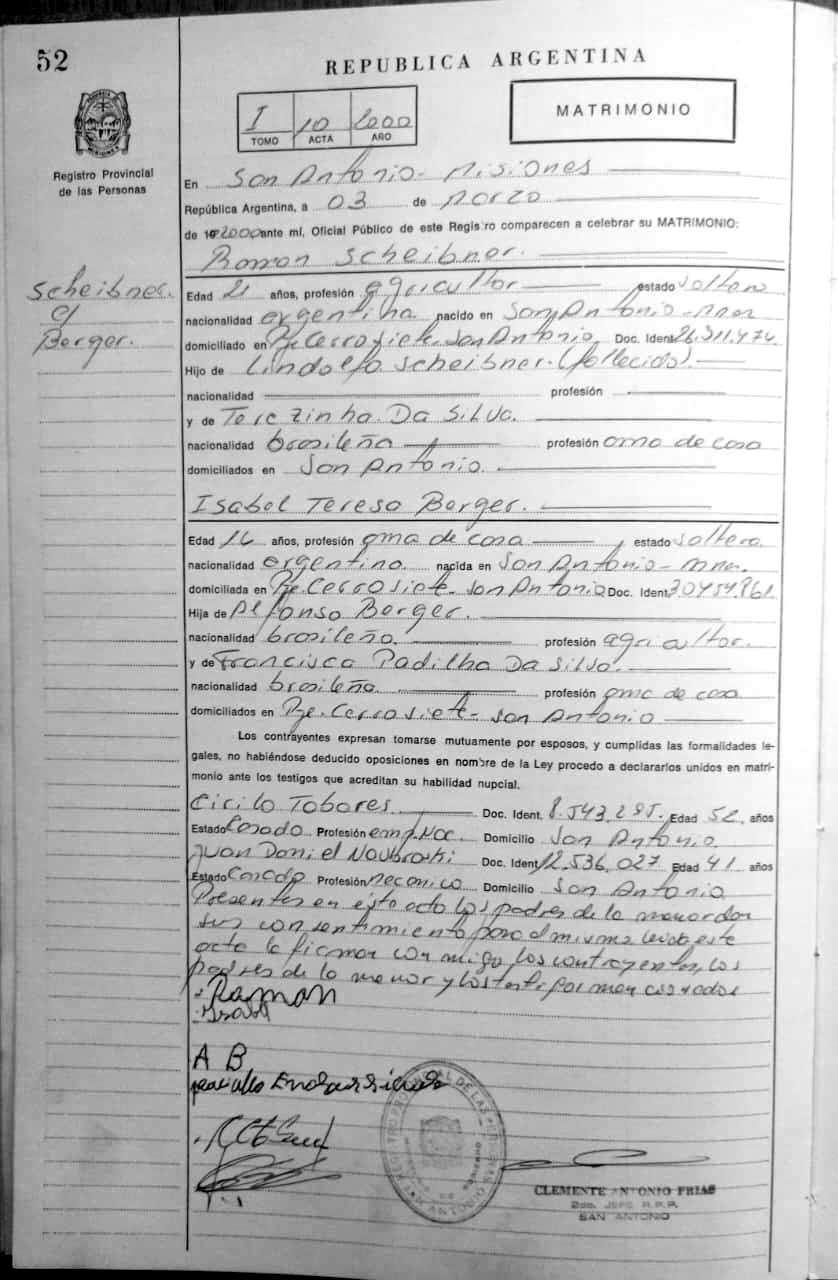 52
REPUBLICA ARGENTINA
I 10 2000
TOMO ACTA AÑO
MATRIMONIO
Registro Provincial
de las Personas
En San Antonio - Misiones
República Argentina, a 03 de Marzo
de 19 2000 ante mí, Oficial Público de este Registro comparecen a celebrar su MATRIMONIO:
Ramon Scheibner.
Scheibner.
c/
Berger.
Edad 21 años, profesión agricultor estado soltero
nacionalidad argentina nacido en San Antonio - Mnes
domiciliado en Pje. Cerro siete - San Antonio Doc. Ident. 26.311.474
Hijo de Lindolfo Scheibner. (fallecido).
nacionalidad profesión
y de Terezinha Da Silva.
nacionalidad brasileña profesión ama de casa
domiciliados en San Antonio.
Isabel Teresa Berger.
Edad 16 años, profesión ama de casa estado soltera
nacionalidad argentina. nacida en San Antonio - Mnes.
domiciliada en Pje. Cerro siete - San Antonio Doc. Ident. 30.454.861
Hija de Alfonso Berger.
nacionalidad brasileño. profesión agricultor.
y de Francisca Padilha Da Silva.
nacionalidad brasileña. profesión ama de casa
domiciliados en Pje. Cerro siete - San Antonio
Los contrayentes expresan tomarse mutuamente por esposos, y cumplidas las formalidades le-
gales, no habiéndose deducido oposiciones en nombre de la Ley procedo a declararlos unidos en matri-
monio ante los testigos que acreditan su habilidad nupcial.
Cirilo Tabares Doc. Ident. 8.543.295. Edad 52 años
Estado Casado Profesión emp. Nac. Domicilio San Antonio
Juan Daniel Doc. Ident. 12.536.027 Edad 41 años
Estado Casado Profesión mecanico Domicilio San Antonio
Presentes en este acto los padres de la menor dan
su consentimiento para el mismo leida este
acta la firman conmigo los contrayentes, los
padres de la menor y los testigos mencionados
Ramon
Isabel
A B
CLEMENTE ANTONIO FRIAS
2do. JEFE R.P.P.
SAN ANTONIO